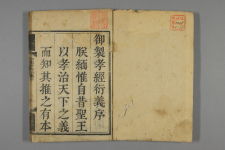 御製孝經衍義序
朕緬惟自昔聖王
以孝治天下之義
而知其推之有本